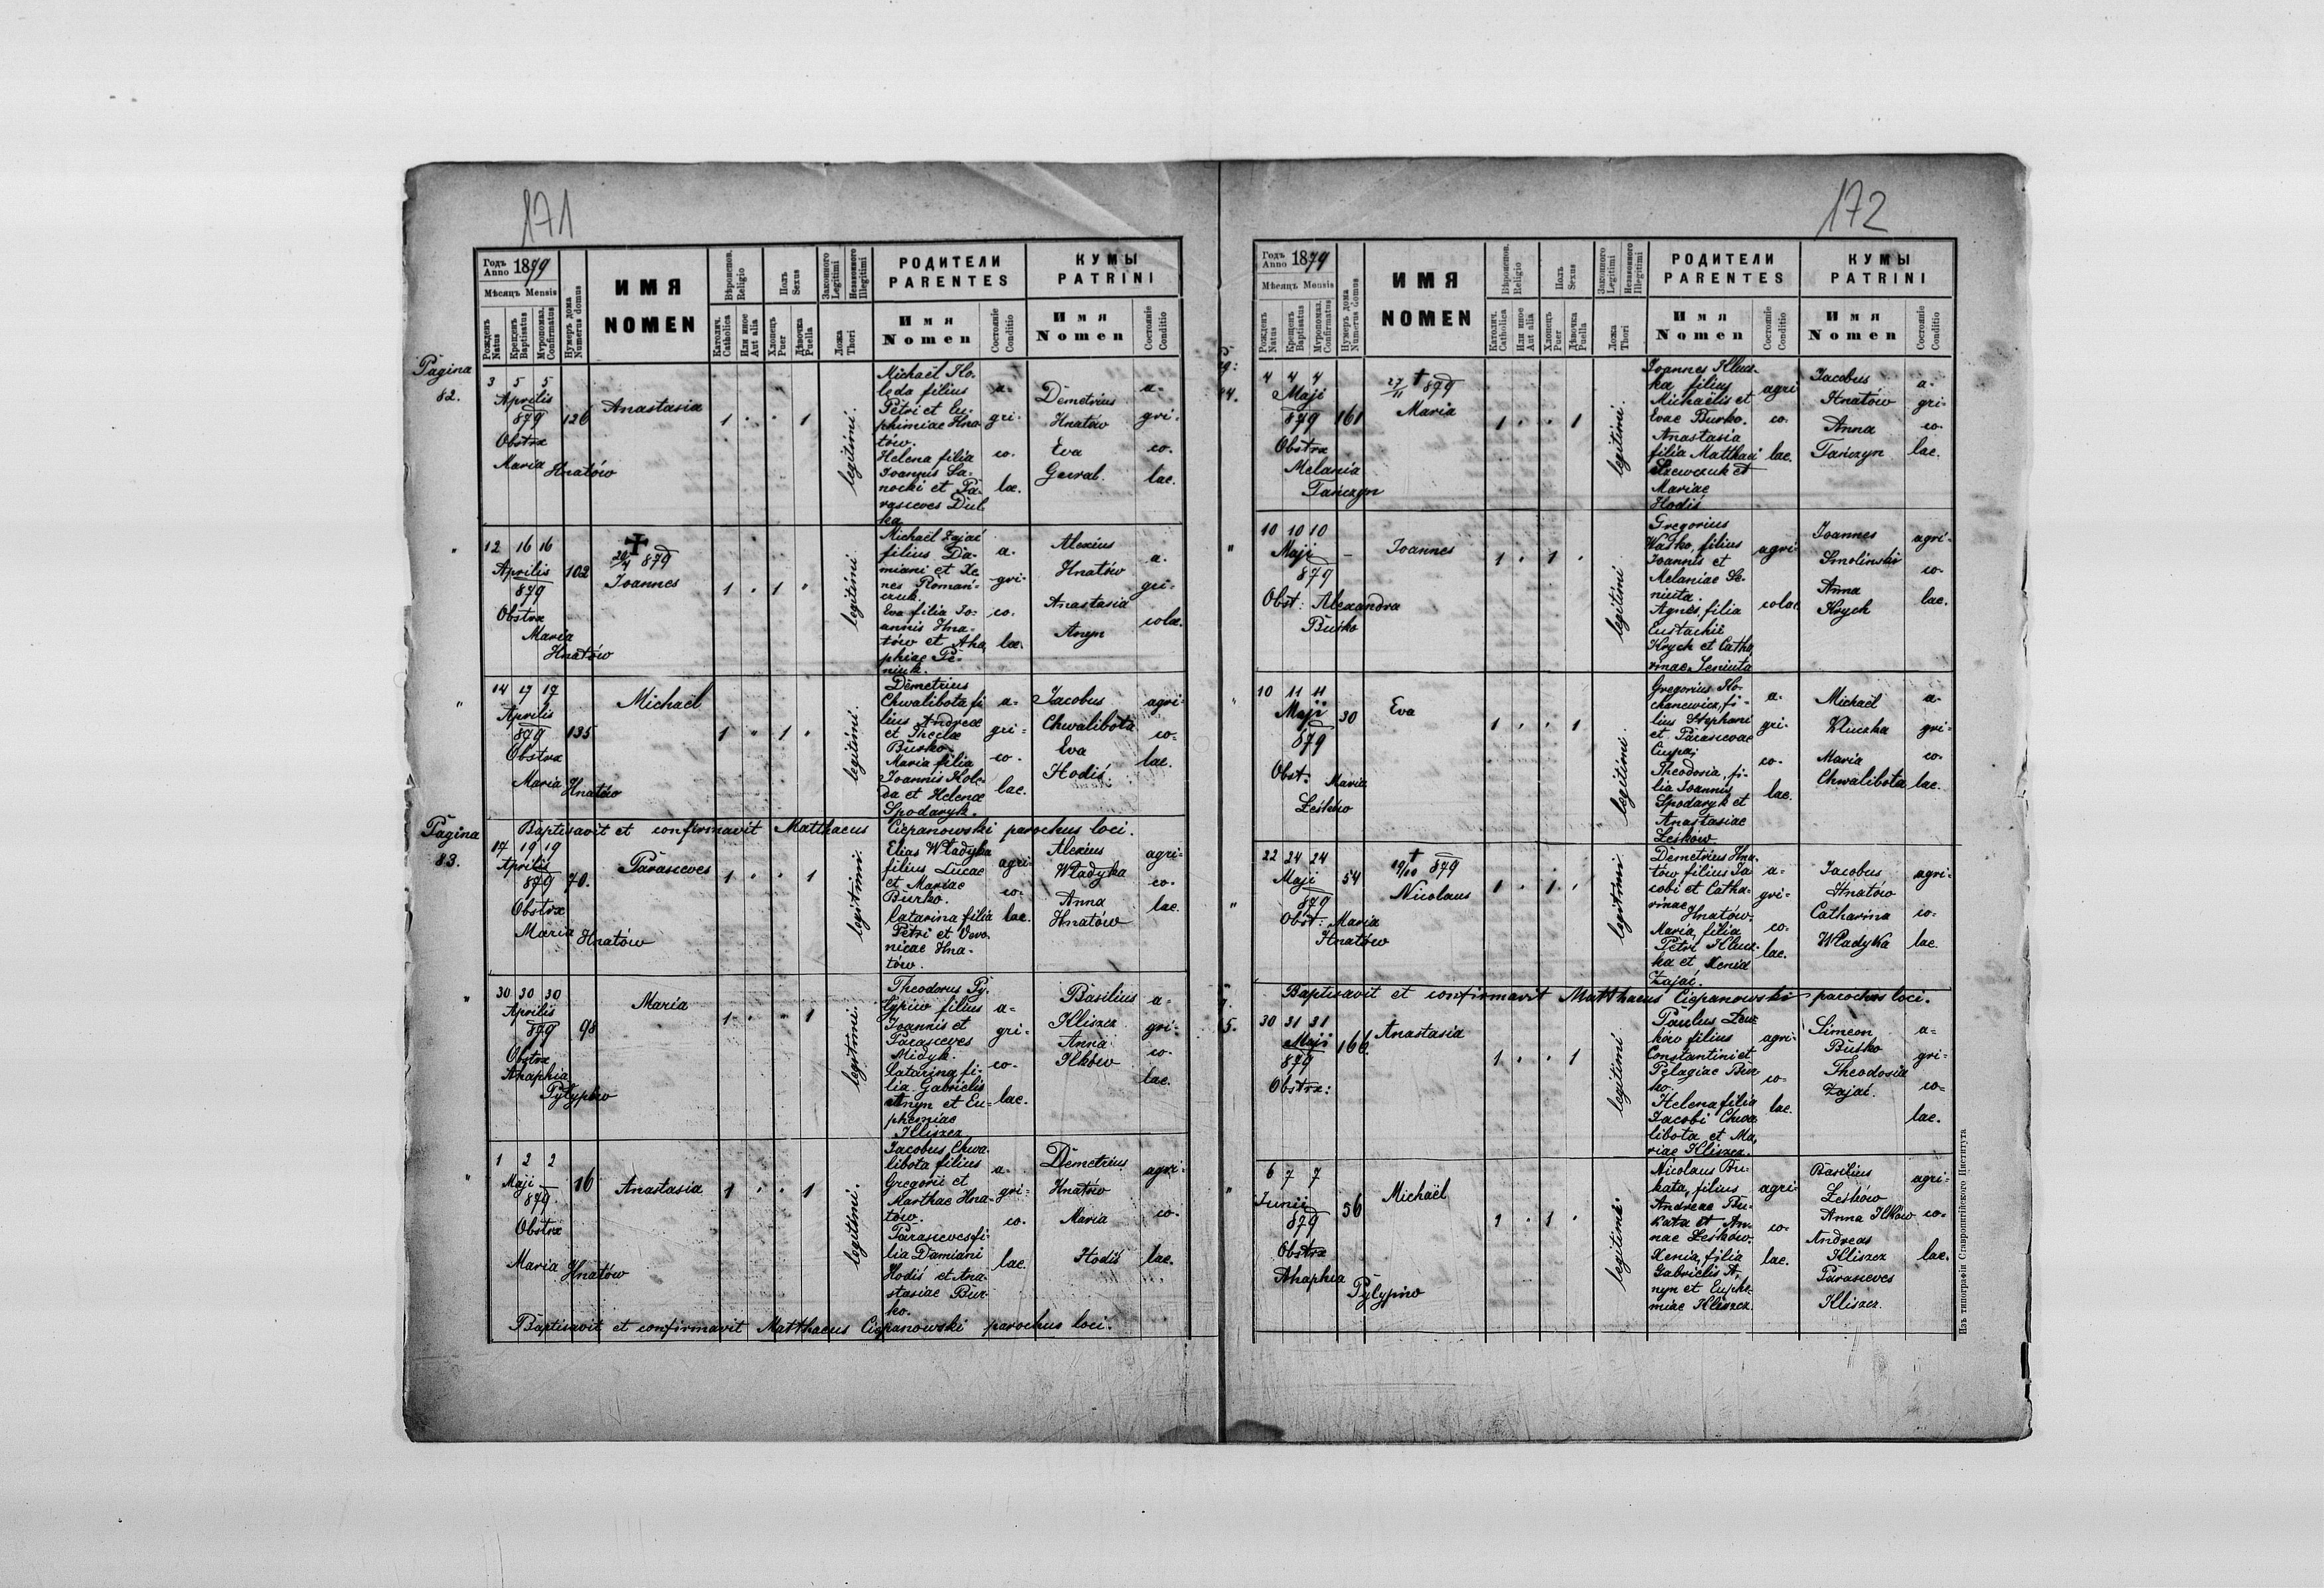 171
Годъ Anno 1879
Мѣсяцъ Mensis
Рожденъ Natus
Крещенъ Baptisatus
Мѵропомаз. Confirmatus
Нумеръ дома Numerus domus
ИМЯ
NOMEN
Вѣроиспов. Religio
Католич. Catholica
Или иное Aut alia
Полъ Sexus
Хлопецъ Puer
Дѣвочка Puella
Законного Legitimi
Незаконного Illegitimi
Ложа Thori
РОДИТЕЛИ
PARENTES
Имя
Nomen
Состояніе Conditio
КУМЫ
PATRINI
Имя
Nomen
Состояніе Conditio
Pagina
82.
3 5 5
Aprilis
879
126
Obstrx
Maria Hnatów
Anastasia
1 " " 1
legitimi.
Michaël Ko-
leda filius
Petri et Eu-
phimiae Hna-
tów.
Helena filia
Joannis Sa-
nocki et Pa-
rasceves Dul-
ka
a-
gri-
co-
lae.
Demetrius
Hnatów
Eva
Gewal.
a-
gri-
co-
lae.
"
12 16 16
Aprilis
879
102
Obstrx
Maria
Hnatów
✝
20/4 879
Joannes
1 " 1 "
legitimi.
Michaël Zajać
filius Da-
miani et Xe-
nes Roman-
czuk.
Eva filia Jo-
annis Hna-
tów et Aha-
phiae Pi-
niuk.
a-
gri-
co-
lae.
Alexius
Hnatów
Anastasia
Anyn
a-
gri-
colae.
"
14 17 17
Aprilis
879
135
Obstrx
Maria Hnatów
Michaël
1 " 1 "
legitimi.
Demetrius
Chwalibota fi
lius Andreae
et Theclae
Burko.
Maria filia
Joannis Kole-
da et Helenae
Spodaryk.
a-
gri-
co-
lae.
Jacobus
Chwalibota
Eva
Hodiś.
agri-
co-
lae.
Baptisavit et confirmavit Matthaeus Ciepanowski parochus loci.
Pagina
83.
17 19 19
Aprilis
879
70.
Obstrx
Maria Hnatów
Parasceves
1 " " 1
legitimi.
Elias Władyka
filius Lucae
et Mariae
Burko.
Catarina filia
Petri et Vero-
nicae Hna-
tów.
agri-
co-
lae.
Alexius
Władyka
Anna
Hnatów
agri-
co-
lae.
"
30 30 30
Aprilis
879
98
Obstrx
Ahaphia
Pylypiw
Maria
1 " " 1
legitimi.
Theodorus Py-
lypiw filius
Joannis et
Parasceves
Midyk.
Catarina fi-
lia Gabrielis
Anyn et Eu-
phemiae
Kliszcz
a-
gri-
co-
lae.
Basilius
Kliszcz
Anna
Ilków
a-
gri-
co-
lae.
"
1 2 2
Maji
879.
16
Obstrx
Maria Hnatów
Anastasia
1 " " 1
legitimi.
Jacobus Chwa-
libota filius
Gregorii et
Marthae Hna-
tów.
Parasceves fi-
lia Damiani
Hodiś et Ana-
stasiae Bur-
ko.
a-
gri-
co-
lae.
Demetrius
Hnatów
Maria
Hodiś
agri-
co-
lae.
Baptisavit et confirmavit Matthaeus Ciepanowski parochus loci.
172
Годъ Anno 1879
Мѣсяцъ Mensis
Рожденъ Natus
Крещенъ Baptisatus
Мѵропомаз. Confirmatus
Нумеръ дома Numerus domus
ИМЯ
NOMEN
Вѣроиспов. Religio
Католич. Catholica
Или иное Aut alia
Полъ Sexus
Хлопецъ Puer
Дѣвочка Puella
Законного Legitimi
Незаконного Illegitimi
Ложа Thori
РОДИТЕЛИ
PARENTES
Имя
Nomen
Состояніе Conditio
КУМЫ
PATRINI
Имя
Nomen
Состояніе Conditio
4 4 4
Maji
879
161
Obstrx
Melania
Tańczyn
27/11 ✝ 879
Maria
1 " " 1
legitimi.
Joannes Klucz-
ka filius
Michaëlis et
Evae Burko.
Anastasia
filia Matthaei
Szewczuk et
Mariae
Hodiś
agri
co-
lae.
Jacobus
Hnatów
Anna
Tańczyn
a-
gri-
co-
lae.
"
10 10 10
Maji
879
-
Obst: Alexandra
Buśko
Joannes
1 " 1 "
legitimi
Gregorius
Waśko, filius
Joannis et
Melaniae Se-
niuta.
Agnes, filia
Eustachii
Krych et Catha-
rinae Seniuta
agri-
colae
Joannes
Smolinski
Anna
Krych
agri-
co-
lae.
"
10 11 11
Maji
879
30
Obst: Maria
Leśków
Eva
1 " " 1
legitimi.
Gregorius Ko-
chanewicz, fi-
lius Stephani
et Parascevae
Cupaj
Theodoria, fi-
lia Joannis
Spodaryk et
Anastasiae
Leśków.
a-
gri-
co-
lae.
Michaël
Kluczka
Maria
Chwalibota
a-
gri-
co-
lae.
"
22 24 24
Maji
879
54
Obst: Maria
Hnatów
✝
19/10 879
Nicolaus
1 " 1 "
legitimi.
Demetrius Hna-
tów filius Ja-
cobi et Catha-
rinae
Hnatów.
Maria, filia
Petri Klucz-
ka et Xenia
Zajać.
a-
gri-
co-
lae.
Jacobus
Hnatów
Catharina
Władyka
agri-
co-
lae.
Baptisavit et confirmavit Matthaeus Ciepanowski parochus loci.
30 31 31
Maji
879
166.
Obstrx:
Anastasia
1 " " 1
legitimi
Paulus Leś-
ków filius
Constantini et
Pelagiae Bur-
ko.
Helena filia
Jacobi Chwa-
libota et Ma-
riae Kliszcz.
agri-
co-
lae.
Simeon
Buśko
Theodosia
Zajać.
a-
gri-
co-
lae.
"
6 7 7
Junii
879
56
Obstrx
Ahaphia
Pylypiw
Michaël
1 " 1 "
legitimi.
Nicolaus Bu-
kata, filius
Andreae Bu-
kata et An-
nae Leśków.
Xenia, filia
Gabrielis A-
nyn et Euphe-
miae Kliszcz.
agri-
co-
lae.
Basilius
Leśków
Anna Ilków
Andreas
Kliszcz
Parasceves
Kliszcz.
agri-
co-
lae.
Изъ типографіи Ставропигійского Института